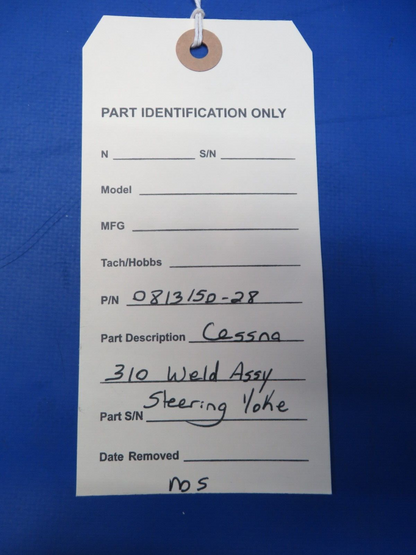 PART IDENTIFICATION ONLY
N S/N
Model
MFG
Tach/Hobbs
P/N 0813150-28
Part Description Cessna
310 Weld Assy
Steering Yoke
Part S/N
Date Removed
nos